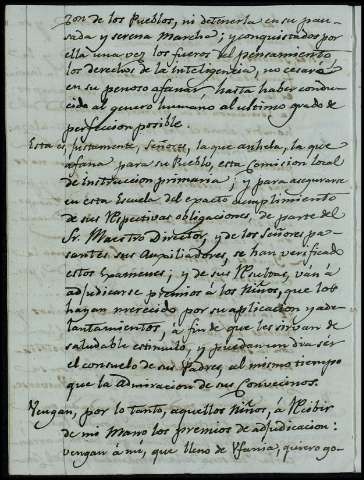 zon de los Pueblos, ni detenerla en su pau-
sada y serena Marcha; y conquistados por
ella una vez los fueros del pensamiento
los derechos de la inteligencia, no cesará
en su penoso afanar, hasta haber condu-
cido al genero humano al ultimo grado de
perfeccion posible.
Esta es, justamente, Señores, la que anhela, la que
afana para su Pueblo, esta Comision local
de instruccion primaria; y para asegurarse
en esta Escuela del exacto cumplimiento
de sus Respectivas obligaciones, de parte del
Sr. Maestro Director, y de los Señores pa-
santes sus Auxiliadores, se han verificado
estos Examenes; y de sus Resultas, ván á
adjudicarse premios á los Niños, que los
hayan merecido por su aplicacion y ade-
lantamientos, á fin de que les sirvan de
saludable estimulo, y puedan un dia ser
el consuelo de sus Padres, al mismo tiempo
que la Admiracion de sus Convecinos.
Vengan, por lo tanto, aquellos Niños, á Recibir
de mi Mano los premios de adjudicacion:
vengan á mi, que lleno de Ufania, quiero go-